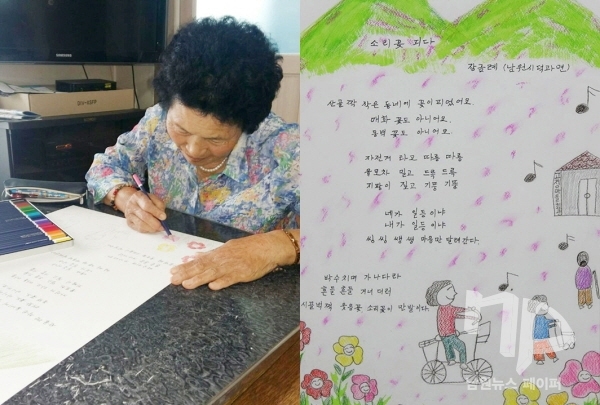 소리꽃 피다
장금례 (남원시 덕과면)
산골짝 작은 동네에 꽃이 피었어요.
매화 꽃도 아니어요.
동백 꽃도 아니어요.
자전거 타고 따릉 따릉
유모차 밀고 드륵 드륵
지팡이 짚고 기뚱 기뚱
네가 일등이냐
내가 일등이냐
씽씽 쌩쌩 마음만 달려간다.
박수치며 가나다라
흔들 흔들 거너더러
웃음꽃 소리꽃이 만발하다.
남원뉴스 페이퍼